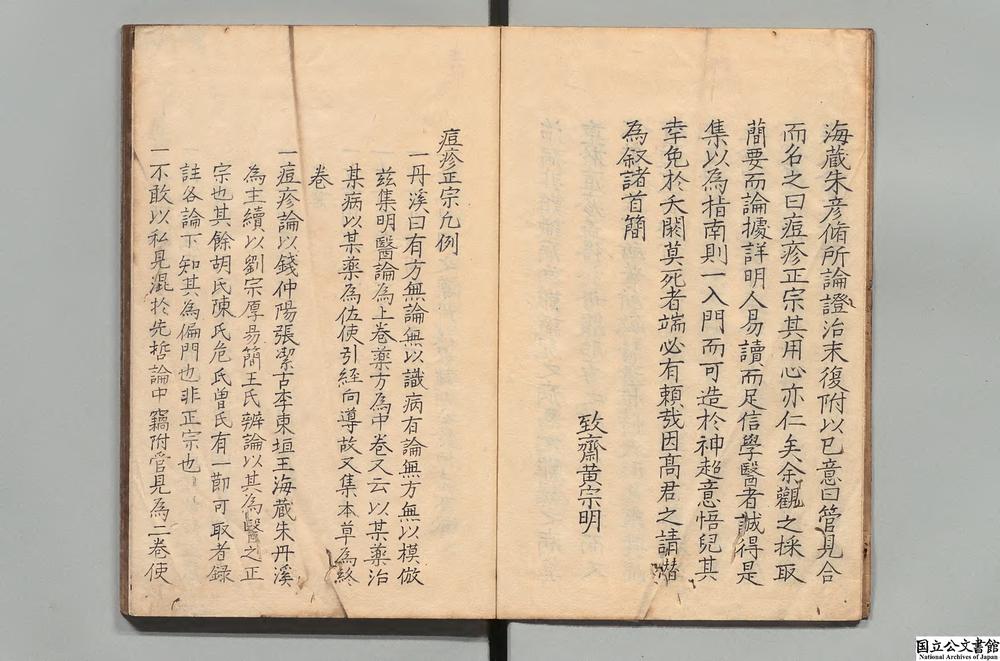 海藏朱彦脩所論證治末復附以已意曰管見合
而名之曰痘疹正宗其用心亦仁矣余觀之採取
簡要而論據詳明人易讀而足信學醫者誠得是
集以為指南則一入門而可造於神超意悟兒其
幸免於夭閼莫死者端必有頼哉因髙君之請僣
為叙諸首簡
致齋黄宗明
痘疹正宗凡例
一丹溪曰有方無論無以識病有論無方無以模倣
兹集明醫論為上卷藥方為中卷又云以某藥治
某病以某藥為佐使引経向導故又集本草為終
卷
一痘疹論以錢仲陽張潔古李東垣王海藏朱丹溪
為主續以劉宗厚易簡王氏辨論以其為醫之正
宗也其餘胡氏陳氏危氏曽氏有一莭可取者録
註各論下知其為偏門也非正宗也
一不敢以私見混於先哲論中竊附管見為二卷使
国立公文書館
National Archives of Japan